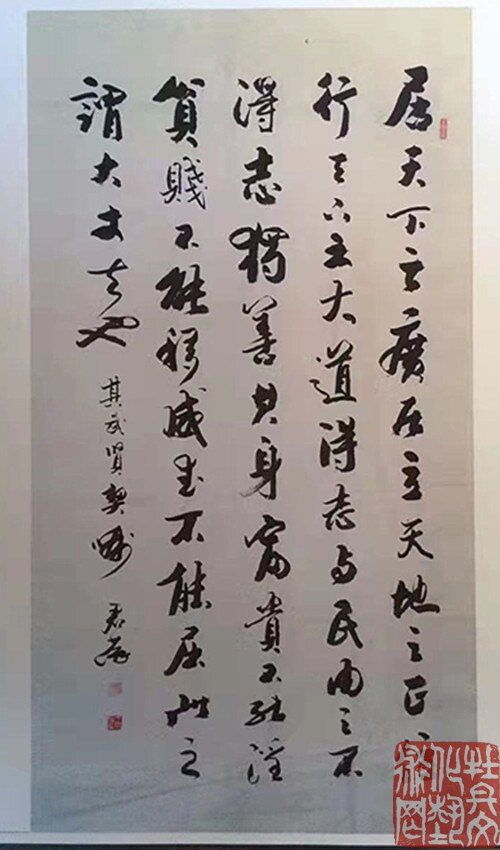 居天下之廣居立天地之正
行天下之大道得志与民由之不
得志獨善其身富貴不能淫
貧賤不能移威武不能屈此之
謂大丈夫也
其武賢契